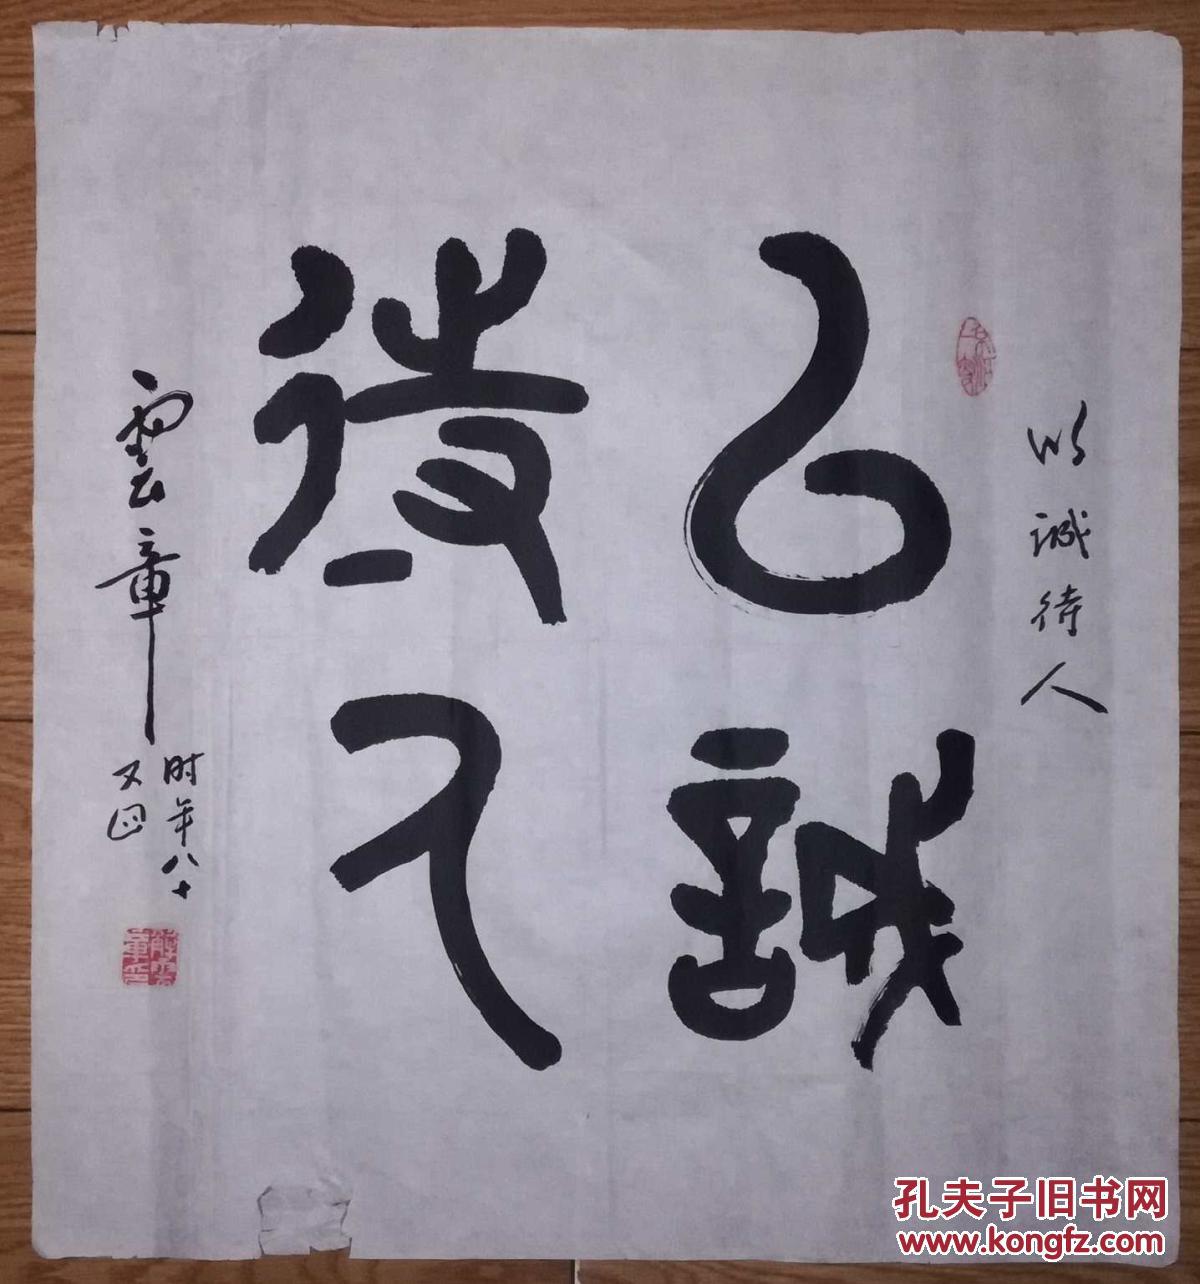 以誠待人
以诚待人
雲章
时年八十
又四
孔夫子旧书网
www.kongfz.com